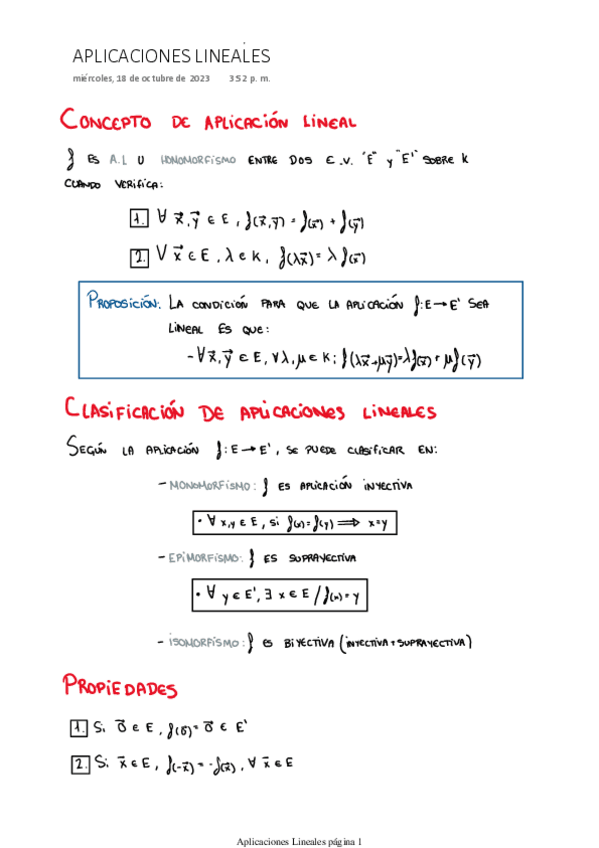 APLICACIONES LINEALES
miércoles, 18 de octubre de 2023 3:52 p. m.
CONCEPTO DE APLICACIÓN LINEAL
f ES A.L U HOMOMORFISMO ENTRE DOS E.V. "E" y "E'" SOBRE K
CUANDO VERIFICA:
1. ∀ x⃗,y⃗ ∈ E, f(x⃗,y⃗) = f(x⃗) + f(y⃗)
2. ∀ x⃗ ∈ E, λ ∈ K, f(λx⃗) = λ f(x⃗)
PROPOSICIÓN: LA CONDICIÓN PARA QUE LA APLICACIÓN f: E → E' SEA
LINEAL ES QUE:
- ∀ x⃗,y⃗ ∈ E, ∀ λ,μ ∈ K; f(λx⃗+μy⃗)=λf(x⃗)+μf(y⃗)
CLASIFICACIÓN DE APLICACIONES LINEALES
SEGÚN LA APLICACIÓN f: E → E', SE PUEDE CLASIFICAR EN:
- MONOMORFISMO: f ES APLICACIÓN INYECTIVA
• ∀ x,y ∈ E, Si f(x) = f(y) ⟹ x=y
- EPIMORFISMO: f ES SUPRAYECTIVA
• ∀ y ∈ E', ∃ x ∈ E / f(x) = y
- ISOMORFISMO: f ES BIYECTIVA (INYECTIVA + SUPRAYECTIVA)
PROPIEDADES
1. Si 0⃗ ∈ E, f(0⃗) = 0⃗ ∈ E'
2. Si x⃗ ∈ E, f(-x⃗) = -f(x⃗), ∀ x⃗ ∈ E
Aplicaciones Lineales página 1